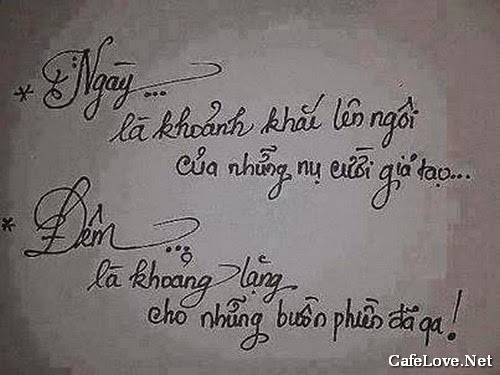 * Ngày...
là khoảnh khắc lên ngôi
của những nụ cười giả tạo...
* Đêm...
là khoảng lặng
cho những buồn phiền đã qa!
CafeLove.Net